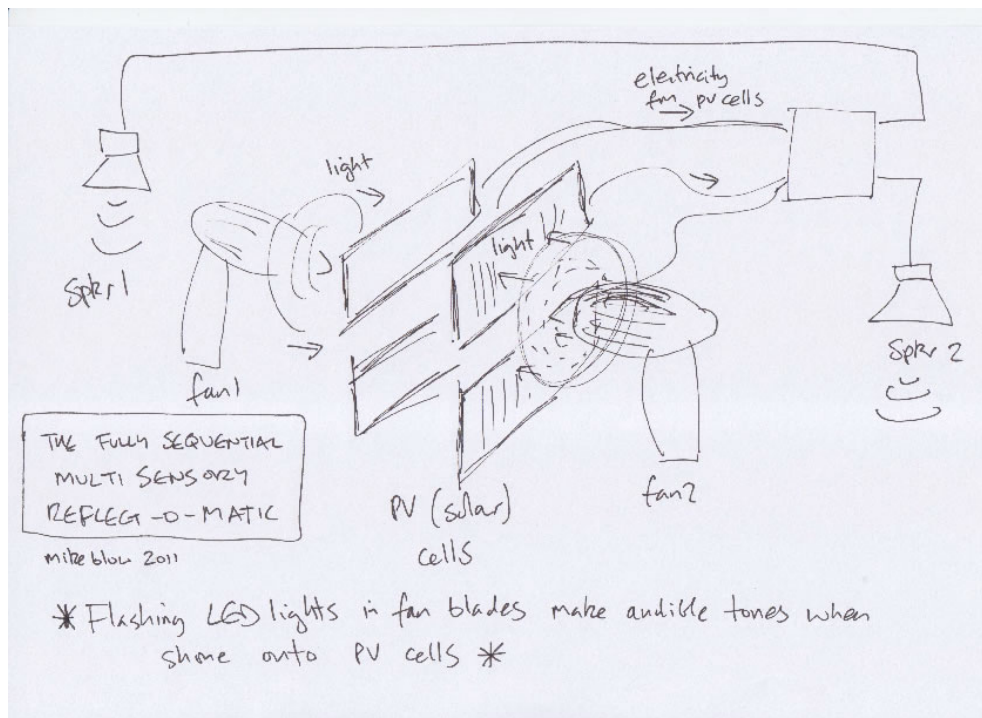 electricity
fm pv cells
light
light
Spkr 1
Spkr 2
fan1
fan2
PV (solar)
cells
THE FULLY SEQUENTIAL
MULTI SENSORY
REFLECT-O-MATIC
mike blow 2011
* Flashing LED lights in fan blades make audible tones when
shone onto PV cells *